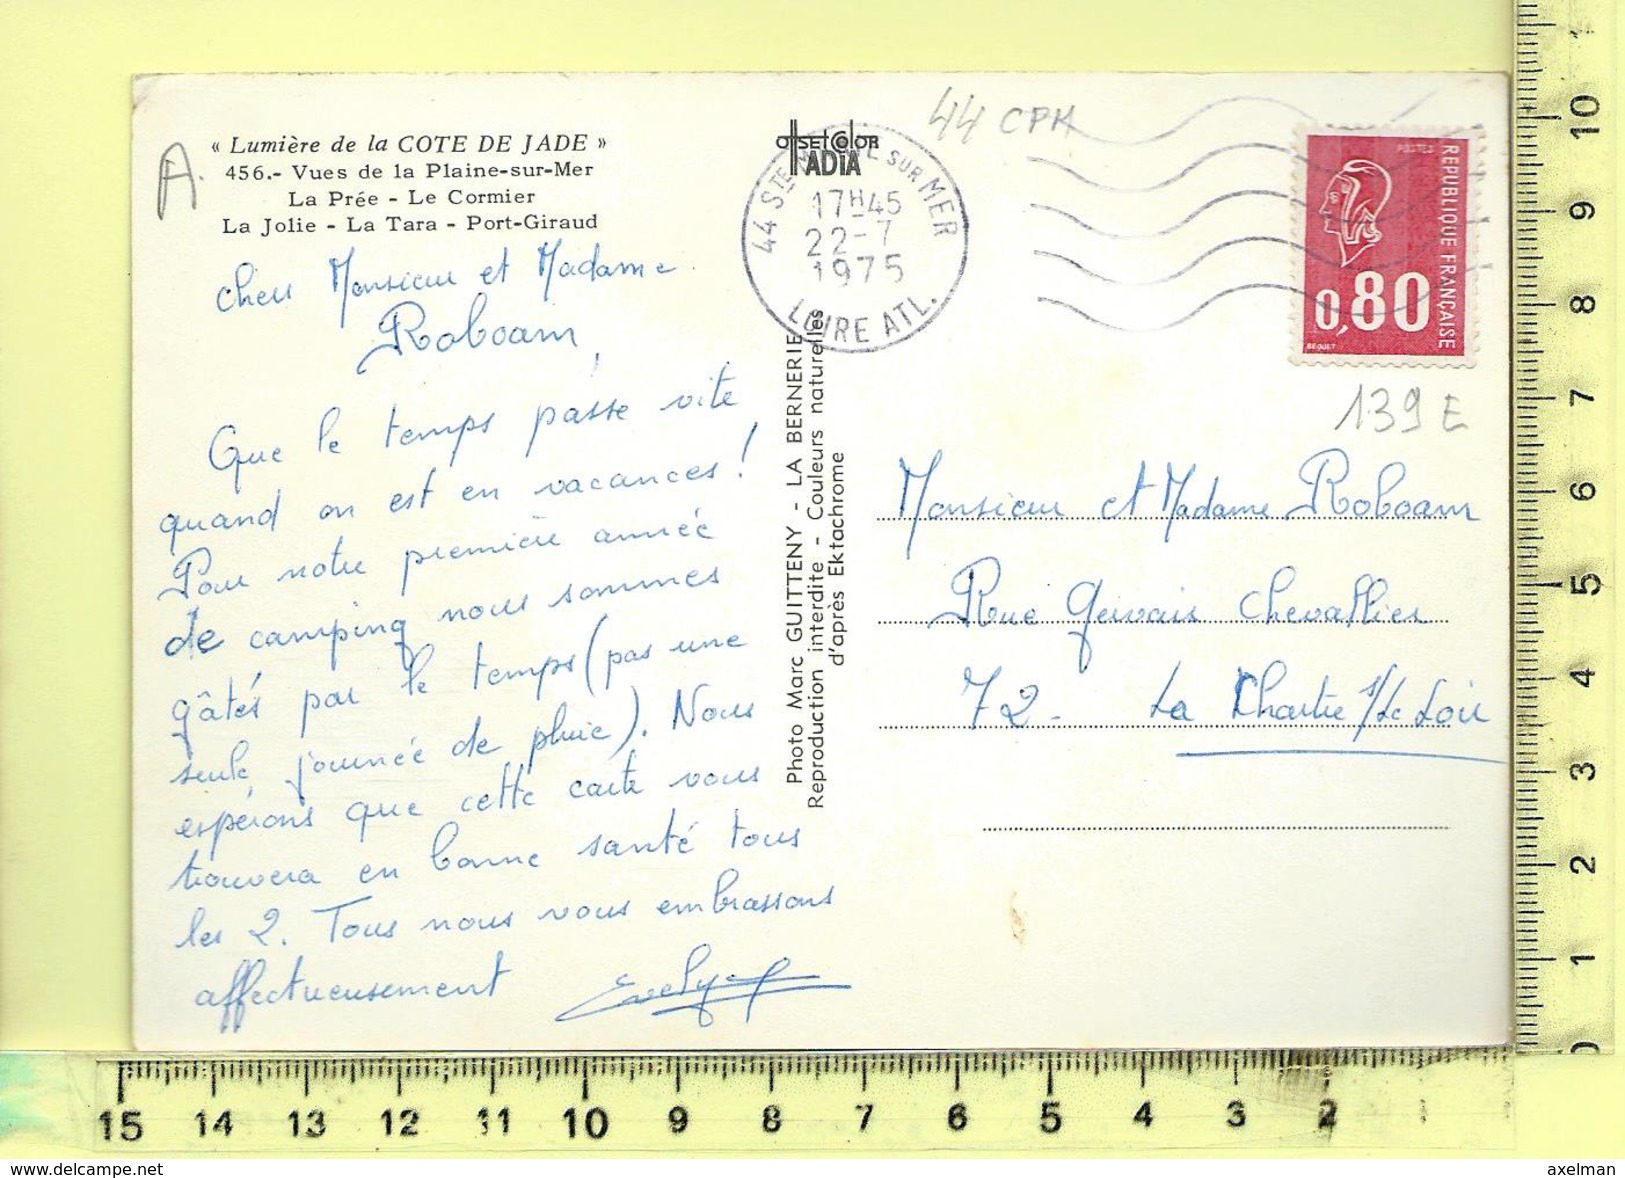 « Lumière de la COTE DE JADE »
456.- Vues de la Plaine-sur-Mer
La Prée - Le Cormier
La Jolie - La Tara - Port-Giraud
A.
chers Monsieur et Madame
Roboam,
Que le temps passe vite
quand on est en vacances !
Pour notre première année
de camping nous sommes
gâtés par le temps (pas une
seule journée de pluie). Nous
espérons que cette carte vous
trouvera en bonne santé tous
les 2. Tous nous vous embrassons
affectueusement Evelyne
offset color
IADIA
Photo Marc GUITTENY - LA BERNERIE
Reproduction interdite - Couleurs naturelles
d'après Ektachrome
44 CPM
44 STE MARIE SUR MER
17H45
22-7
1975
LOIRE ATL.
POSTES
REPUBLIQUE FRANÇAISE
0,80
BEQUET
139 E
Monsieur et Madame Roboam
Rue Gervais Chevallier
72 - La Chartre s/Le Loir
10
9
8
7
6
5
4
3
2
1
15 14 13 12 11 10 9 8 7 6 5 4 3 2 1
www.delcampe.net
axelman